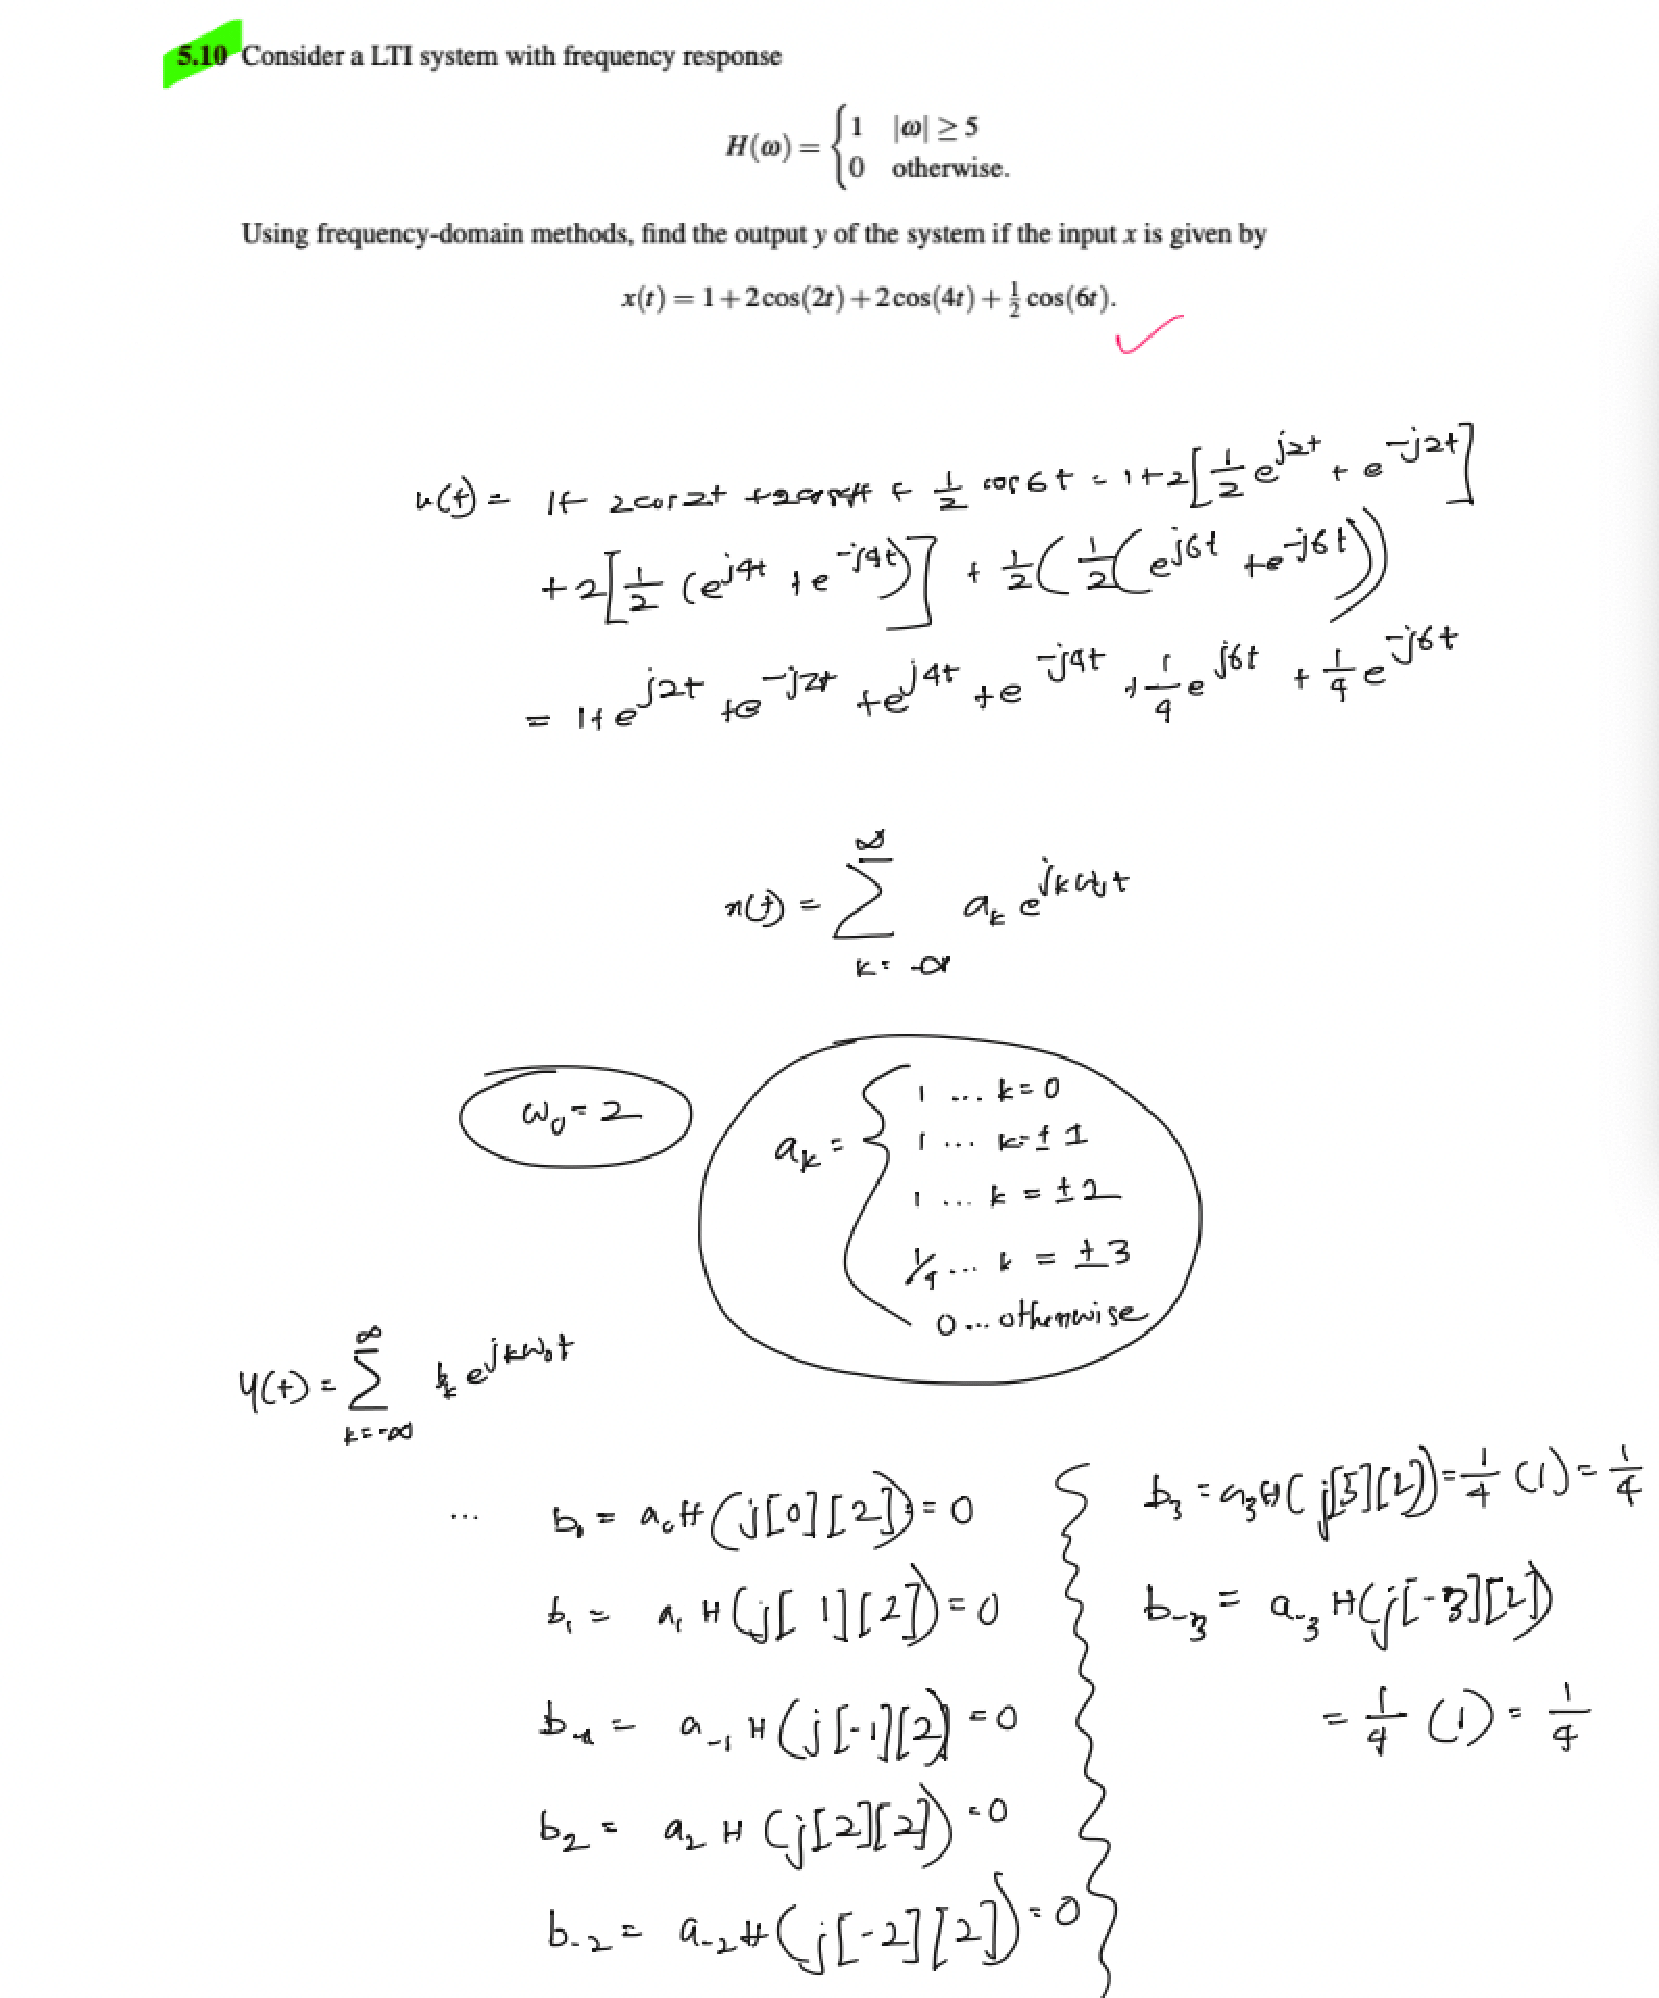 5.10 Consider a LTI system with frequency response
H(ω) = { 1 |ω| ≥ 5
0 otherwise.
Using frequency-domain methods, find the output y of the system if the input x is given by
x(t) = 1 + 2cos(2t) + 2cos(4t) + 1/2 cos(6t).
x(t) = 1 + 2cos2t + 2cos4t + 1/2 cos6t = 1+2[1/2 e^{j2t} + e^{-j2t}]
+2[1/2 (e^{j4t} + e^{-j4t})] + 1/2(1/2(e^{j6t} + e^{-j6t}))
= 1+e^{j2t} + e^{-j2t} + e^{j4t} + e^{-j4t} + 1/4 e^{j6t} + 1/4 e^{-j6t}
x(t) = ∑_{k=-∞}^{∞} a_k e^{jkω_0t}
ω_0 = 2
a_k = { 1 ... k=0
1 ... k=±1
1 ... k=±2
1/4 ... k=±3
0 ... otherwise
y(t) = ∑_{k=-∞}^{∞} b_k e^{jkω_0t}
... b_0 = a_0 H(j[0][2]) = 0
b_1 = a_1 H(j[1][2]) = 0
b_{-1} = a_{-1} H(j[-1][2]) = 0
b_2 = a_2 H(j[2][2]) = 0
b_{-2} = a_{-2} H(j[-2][2]) = 0
b_3 = a_3 H(j[3][2]) = 1/4 (1) = 1/4
b_{-3} = a_{-3} H(j[-3][2])
= 1/4 (1) = 1/4